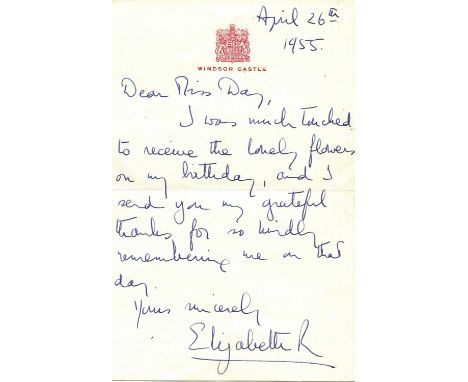 April 26th
1955.
WINDSOR CASTLE
Dear Miss Day,
I was much touched
to receive the lovely flowers
on my birthday, and I
send you my grateful
thanks for so kindly
remembering me on that
day.
Yours sincerely
Elizabeth R